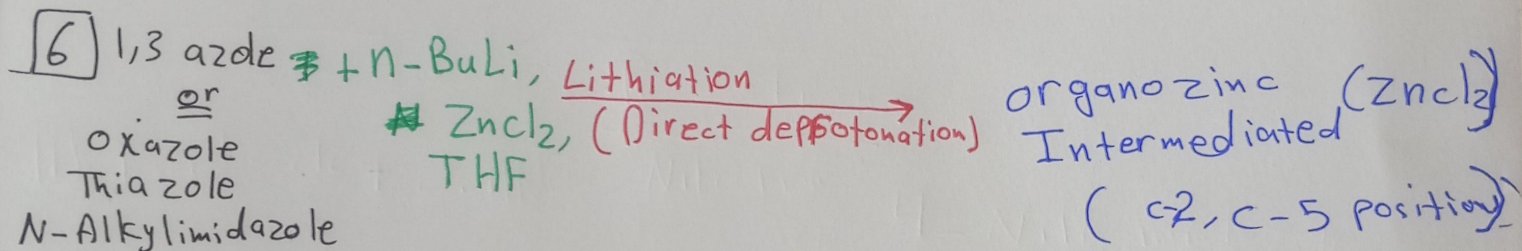 6 1,3 azole + n-BuLi, Lithiation
or
oxazole
Thiazole
N-Alkylimidazole
ZnCl2, (Direct deprotonation)
THF
organozinc (ZnCl2)
Intermediated
(C-2, C-5 position)